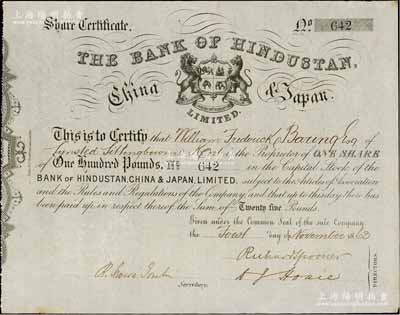 上海阳明拍卖
Share Certificate. No 642
THE BANK OF HINDUSTAN,
China & Japan.
LIMITED.
This is to Certify that William Frederick Baring Esq of
is the Proprietor of ONE SHARE
of One Hundred Pounds, No 642 in the Capital Stock of the
BANK OF HINDUSTAN, CHINA & JAPAN, LIMITED. subject to the Articles of Association
and the Rules and Regulations of the Company, and that up to this day there has
been paid up in respect thereof the Sum of Twenty five Pounds.
Given under the Common Seal of the said Company
the First day of November 1862
DIRECTORS.
Secretary.
上海阳明拍卖